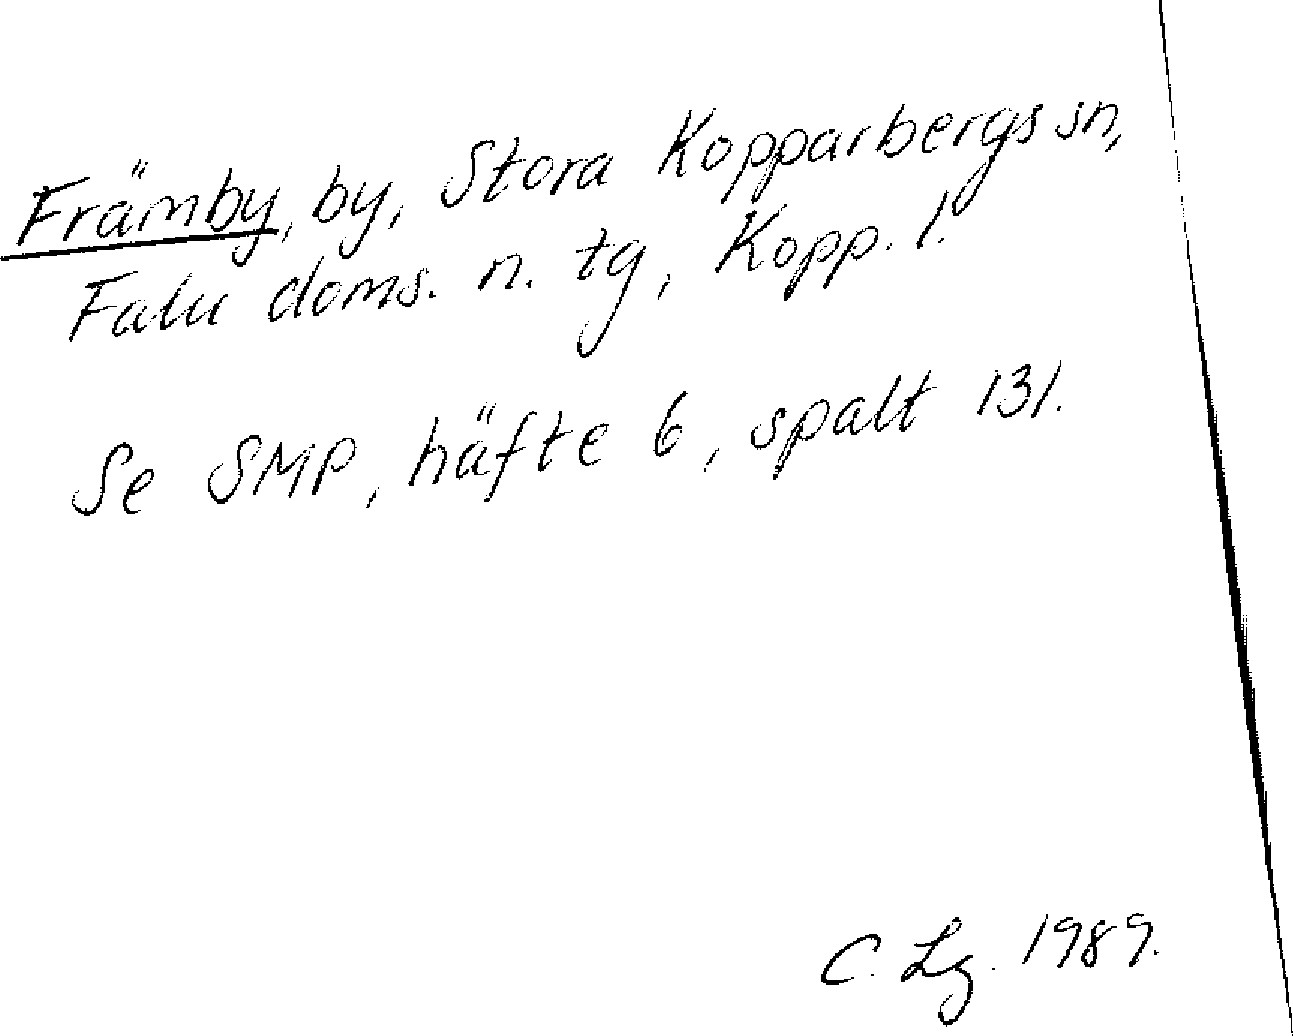 Främby, by, Stora Kopparbergs sn,
Falu doms. n. tg, Kopp. l.
Se SMP, häfte 6, spalt 131.
C. Lg. 1989.